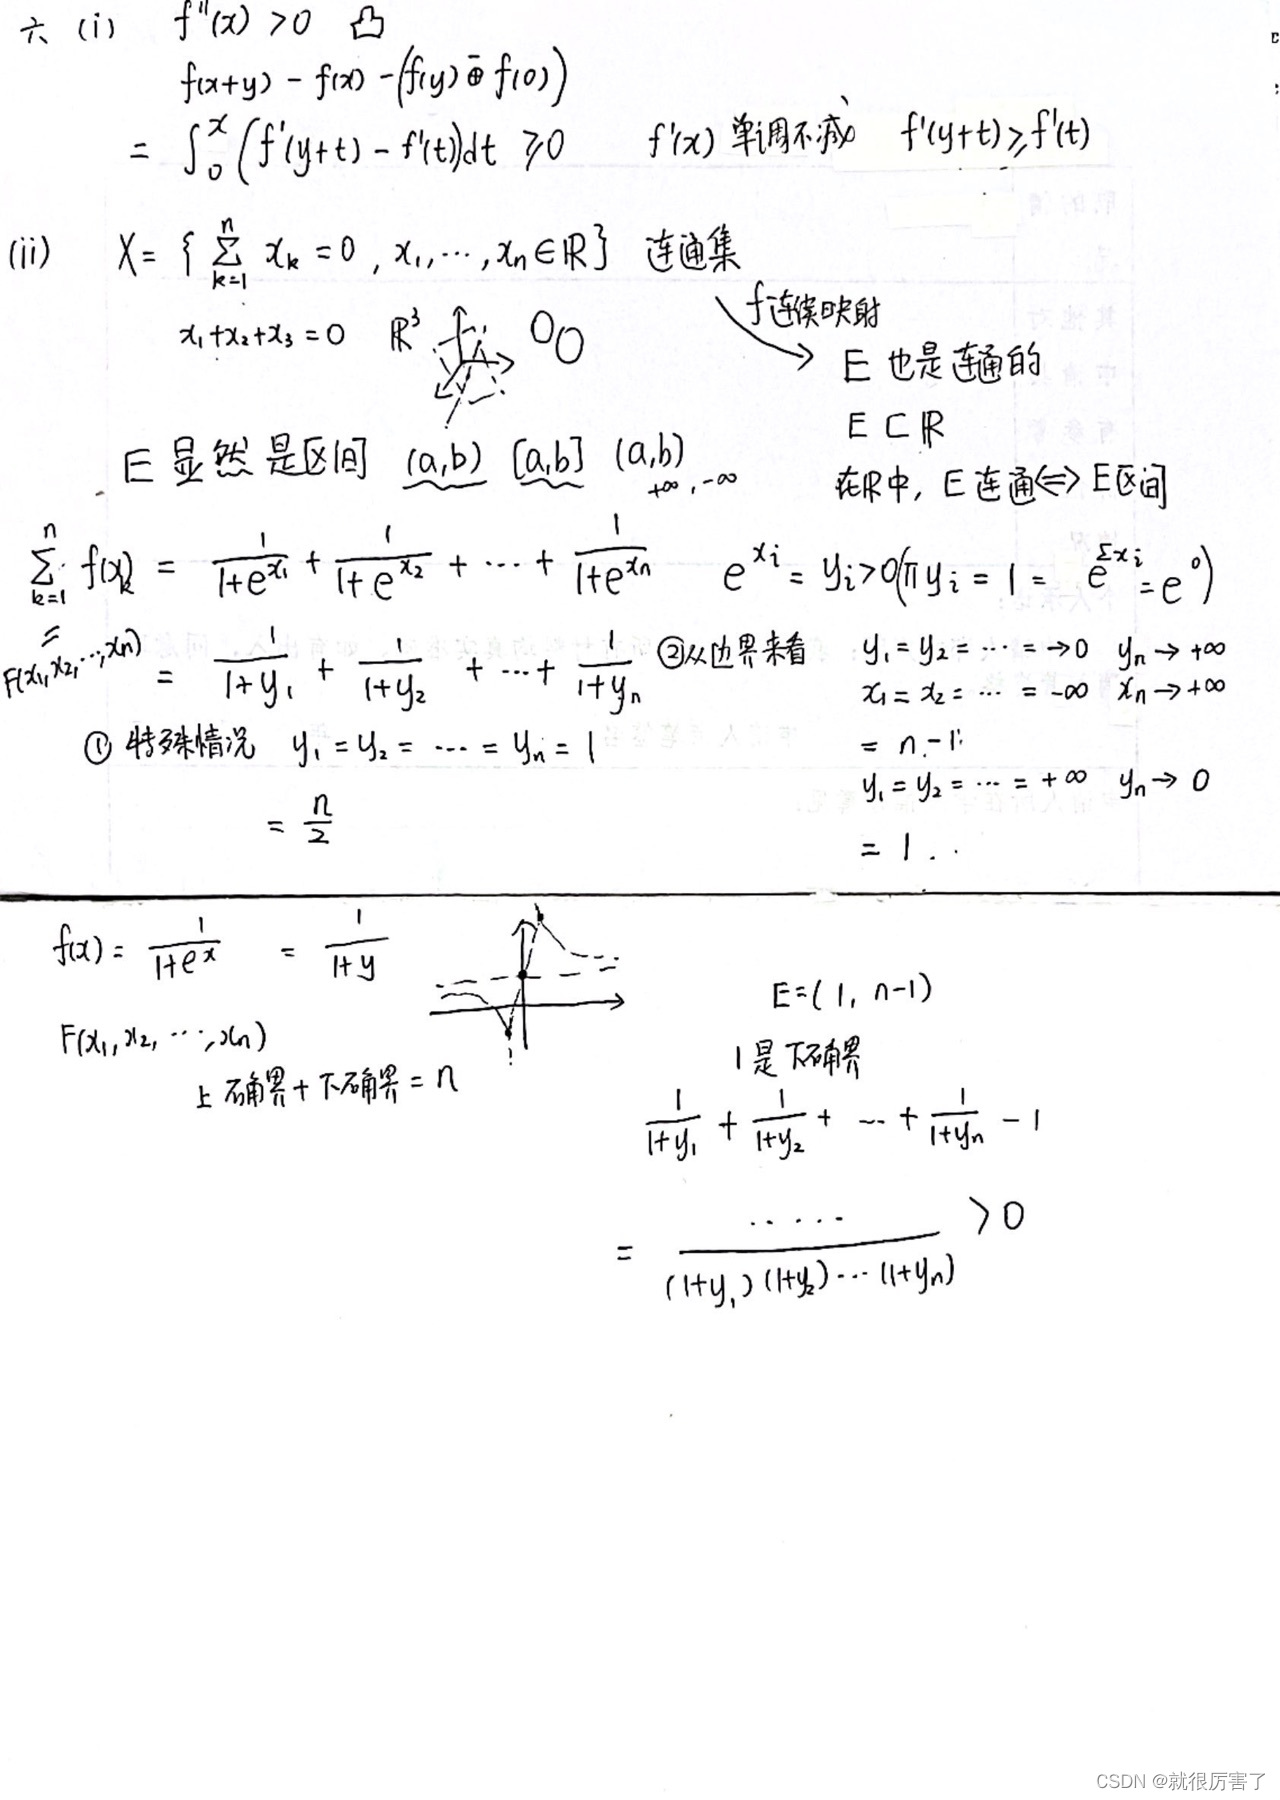 六 (i) f''(x) > 0 凸
f(x+y) - f(x) - (f(y) - f(0))
= ∫₀ˣ (f'(y+t) - f'(t))dt ≥ 0 f'(x) 单调不减 f'(y+t) ≥ f'(t)
(ii) X = { Σ_{k=1}^{n} x_k = 0 , x₁, ⋯, x_n ∈ ℝ } 连通集
f连续映射
x₁+x₂+x₃ = 0 ℝ³
E 也是连通的
E ⊂ ℝ
E 显然是区间 (a,b) [a,b] (a,b)
+∞, -∞
在ℝ中, E 连通 ⇔ E区间
Σ_{k=1}^{n} f(x)_k = 1/(1+e^{x₁}) + 1/(1+e^{x₂}) + ⋯ + 1/(1+e^{x_n}) e^{x_i} = y_i > 0 (π y_i = 1 = e^{Σx_i} = e⁰)
=
F(x₁, x₂, ⋯, x_n) = 1/(1+y₁) + 1/(1+y₂) + ⋯ + 1/(1+y_n)
① 特殊情况 y₁ = y₂ = ⋯ = y_n = 1
= n/2
②从边界来看 y₁ = y₂ = ⋯ = → 0 y_n → +∞
x₁ = x₂ = ⋯ = -∞ x_n → +∞
= n-1
y₁ = y₂ = ⋯ = +∞ y_n → 0
= 1
f(x) = 1/(1+e^x) = 1/(1+y)
F(x₁, x₂, ⋯, x_n)
上确界 + 下确界 = n
E = (1, n-1)
1是下确界
1/(1+y₁) + 1/(1+y₂) + ⋯ + 1/(1+y_n) - 1
= ⋯⋯/((1+y₁)(1+y₂)⋯(1+y_n)) > 0
CSDN @就很厉害了